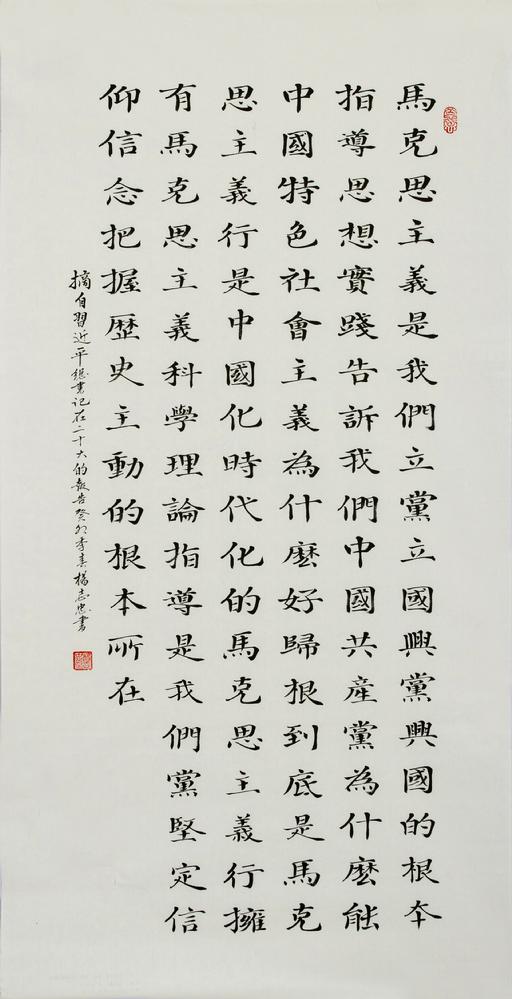 馬克思主義是我們立黨立國興黨興國的根本
指導思想實踐告訴我們中國共産黨為什麽能
中國特色社會主義為什麽好歸根到底是馬克
思主義行是中國化時代化的馬克思主義行擁
有馬克思主義科學理論指導是我們黨堅定信
仰信念把握歷史主動的根本所在
摘自習近平總書記在二十大的報告癸卯季春楊志忠書